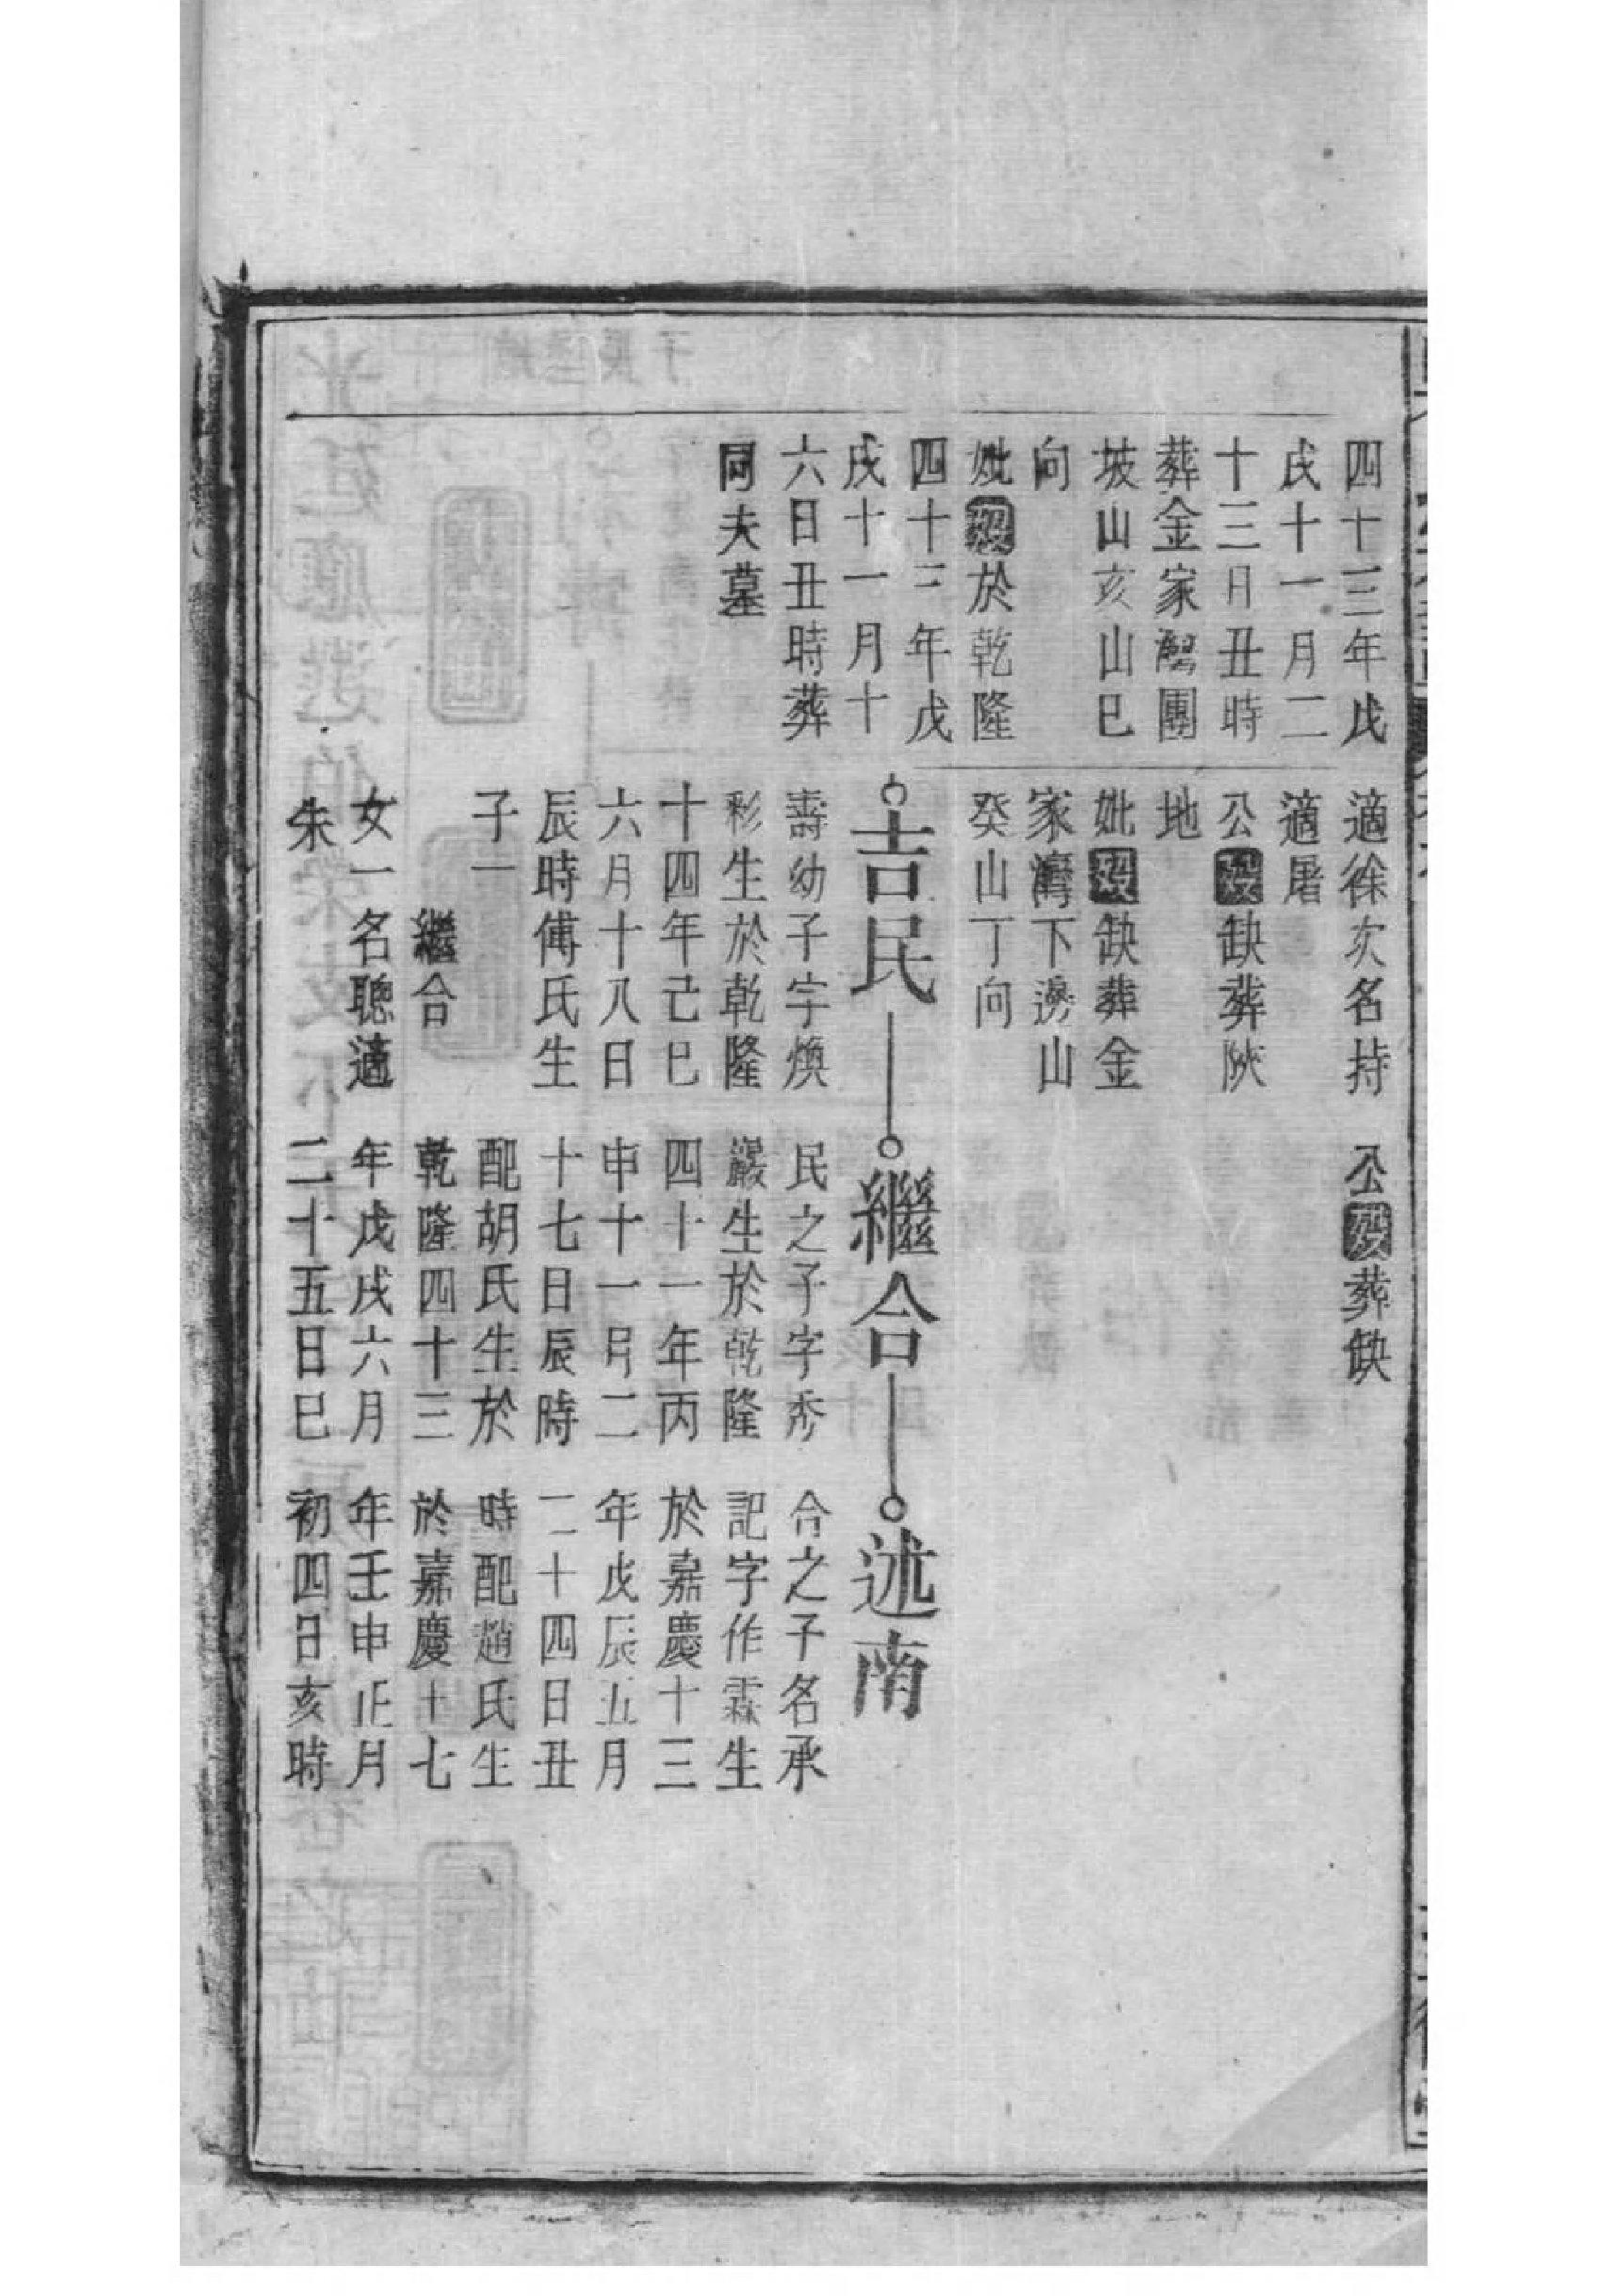 四十三年戊
戌十一月二
十三日丑時
葬金家嘴團
坡山亥山巳
向
妣歿於乾隆
四十三年戊
戌十一月十
六日丑時葬
同夫墓
適徐次名持
適屠
公歿缺葬陝
地
妣歿缺葬金
家灣下邊山
癸山丁向
公歿葬缺
吉民
繼合
述南
壽幼子字煥
彩生於乾隆
十四年己巳
六月十八日
辰時傅氏生
子一
繼合
女一名聰適
朱
民之子字秀
巖生於乾隆
四十一年丙
申十一月二
十七日辰時
配胡氏生於
乾隆四十三
年戊戌六月
二十五日巳
合之子名承
記字作霖生
於嘉慶十三
年戊辰五月
二十四日丑
時配趙氏生
於嘉慶十七
年壬申正月
初四日亥時